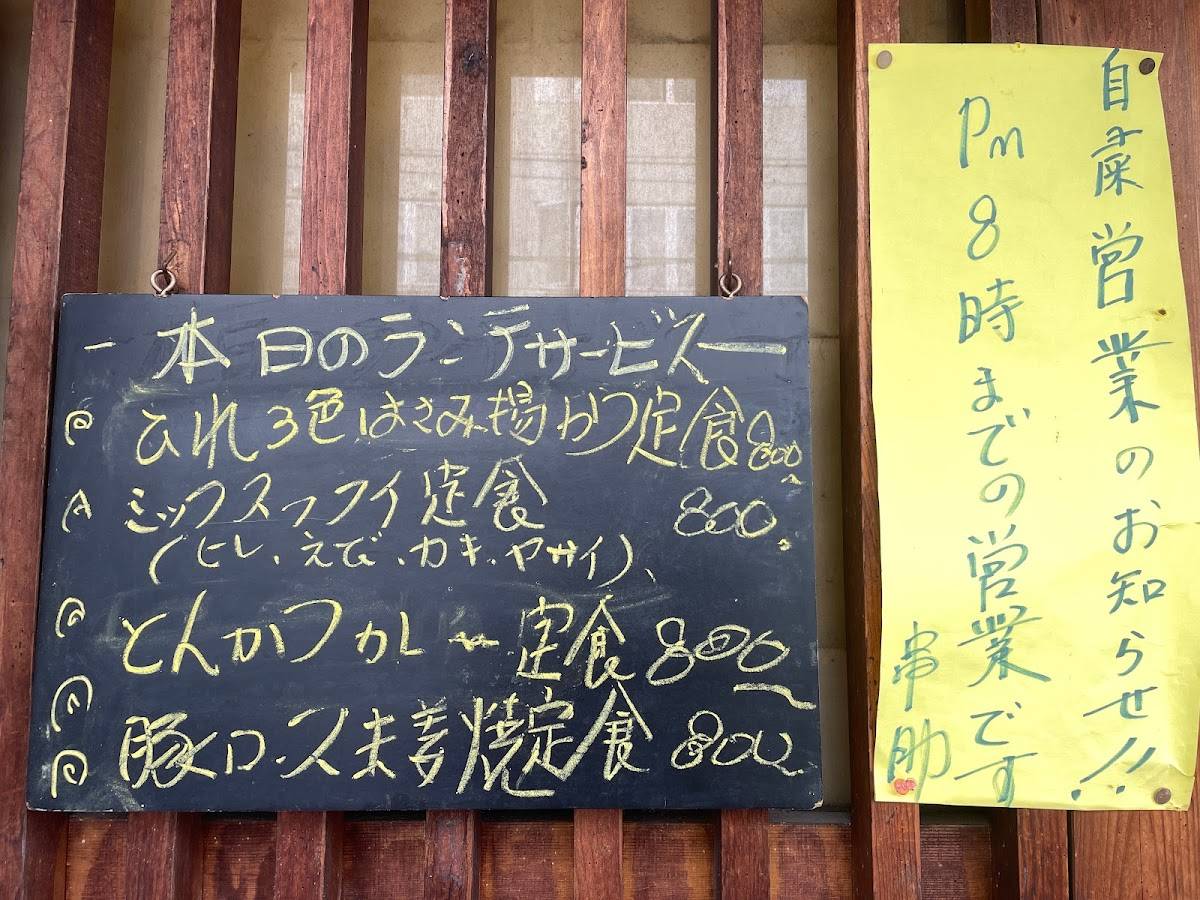 ー本日のランチサービスー
@ ひれ3色はさみ揚かつ定食 800
ミックスフライ定食 800
(ヒレ、えび、カキ、ヤサイ)、
@ とんかつカレー定食 800
豚ロース生姜焼定食 800
自粛営業のお知らせ!!
Pm8時までの営業です
串助